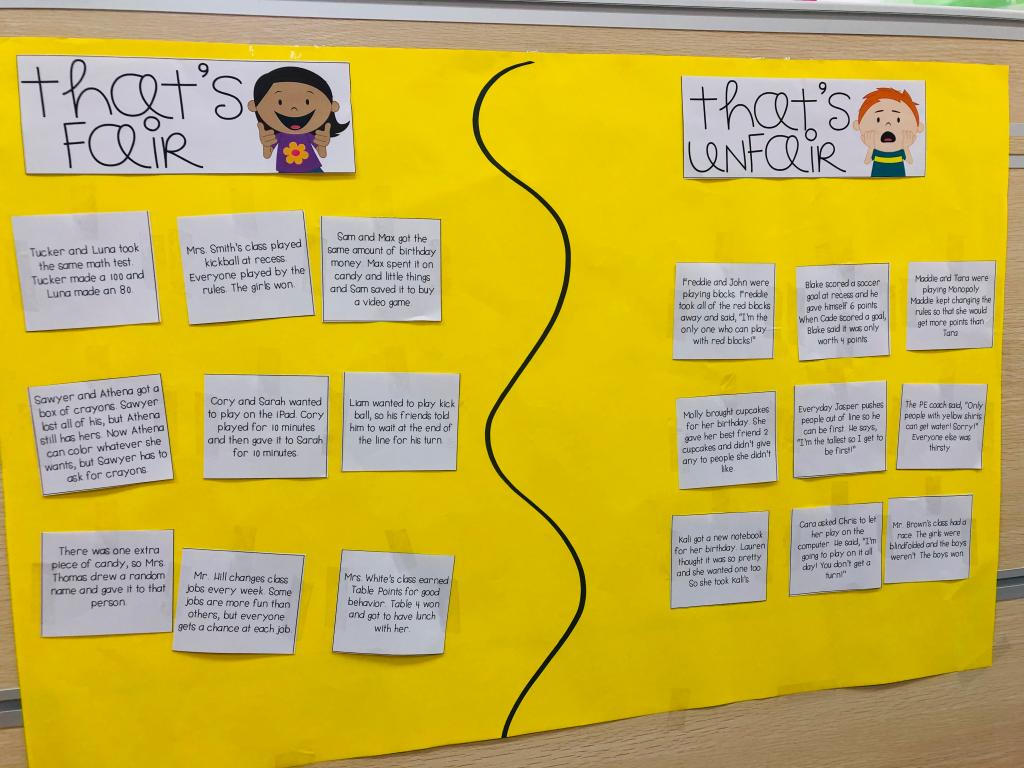 that's
FaiR
Tucker and Luna took
the same math test.
Tucker made a 100 and
Luna made an 80.
Mrs. Smith's class played
kickball at recess.
Everyone played by the
rules. The girls won.
Sam and Max got the
same amount of birthday
money. Max spent it on
candy and little things
and Sam saved it to buy
a video game.
Sawyer and Athena got a
box of crayons. Sawyer
lost all of his, but Athena
still has hers. Now Athena
can color whatever she
wants, but Sawyer has to
ask for crayons.
Cory and Sarah wanted
to play on the iPad. Cory
played for 10 minutes
and then gave it to Sarah
for 10 minutes.
Liam wanted to play kick
ball, so his friends told
him to wait at the end of
the line for his turn.
There was one extra
piece of candy, so Mrs.
Thomas drew a random
name and gave it to that
person.
Mr. Hill changes class
jobs every week. Some
jobs are more fun than
others, but everyone
gets a chance at each job.
Mrs. White's class earned
Table Points for good
behavior. Table 4 won
and got to have lunch
with her.
that's
unFaiR
Freddie and John were
playing blocks. Freddie
took all of the red blocks
away and said, "I'm the
only one who can play
with red blocks!"
Blake scored a soccer
goal at recess and he
gave himself 6 points.
When Cade scored a goal,
Blake said it was only
worth 4 points.
Maddie and Tara were
playing Monopoly
Maddie kept changing the
rules so that she would
get more points than
Tara
Molly brought cupcakes
for her birthday. She
gave her best friend 2
cupcakes and didn't give
any to people she didn't
like.
Everyday Jasper pushes
people out of line so he
can be first. He says,
"I'm the tallest so I get to
be first!"
The PE coach said, "Only
people with yellow shirts
can get water! Sorry!"
Everyone else was
thirsty
Kali got a new notebook
for her birthday. Lauren
thought it was so pretty
and she wanted one too.
So she took Kali's.
Cara asked Chris to let
her play on the
computer. He said, "I'm
going to play on it all
day! You don't get a
turn!"
Mr. Brown's class had a
race. The girls were
blindfolded and the boys
weren't. The boys won